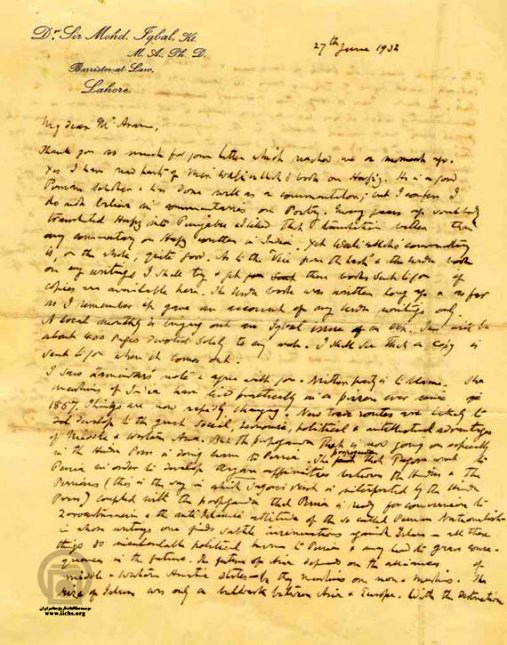 Dr. Sir Mohd. Iqbal, Kt
M. A., Ph. D.
Barrister-at-Law,
Lahore.
27th June 1932
My dear Mr
Thank you so much for your letter which reached me a moment ago.
Yes I have book on Hafiz. He is a good
Persian scholar & has done well as a commentator; but I confess I
do not believe in commentaries on Poetry. Many years ago somebody
translated Hafiz into Punjabi & I liked that translation better than
any commentary on Hafiz written in India. Yet commentary
is, on the whole, quite good. As to the & the Urdu book
on my writings I shall try & get them both sent to you if
copies are available here. The Urdu book was written long ago & as far
as I remember it gave an account of my Urdu writings only.
A local monthly is bringing out an Iqbal issue in Oct. This will be
about 400 pages devoted solely to my work. I shall see that a copy is
sent to you when it comes out.
I saw note & agree with you. Neither party is to blame. The
Muslims of India have lived practically in a prison ever since
1857. Things are now rapidly changing. New trade routes are likely to
develop to the great social, economic, political & intellectual advantage
of Middle & Western Asia. But the propaganda that is now going on especially
in the Hindu Press is doing harm to Persia. The propaganda that Tagore went to
Persia in order to develop Aryan affinities between the Hindus & the
Persians (this is the way in which Tagore's visit is interpreted by the Hindu
Press) coupled with the propaganda that Persia is ready for conversion to
Zoroastrianism & the anti Islamic attitude of the so called Persian Nationalists
in whose writings one finds subtle insinuations against Islam - all these
things do incalculable political harm to Persia & may lead to grave conse-
quences in the future. The future of Asia depends on the alliances of
middle & western states - be they Muslims or non-Muslims. The
of Islam was only a bulwark between Asia & Europe. With the destruction
www.iichs.org